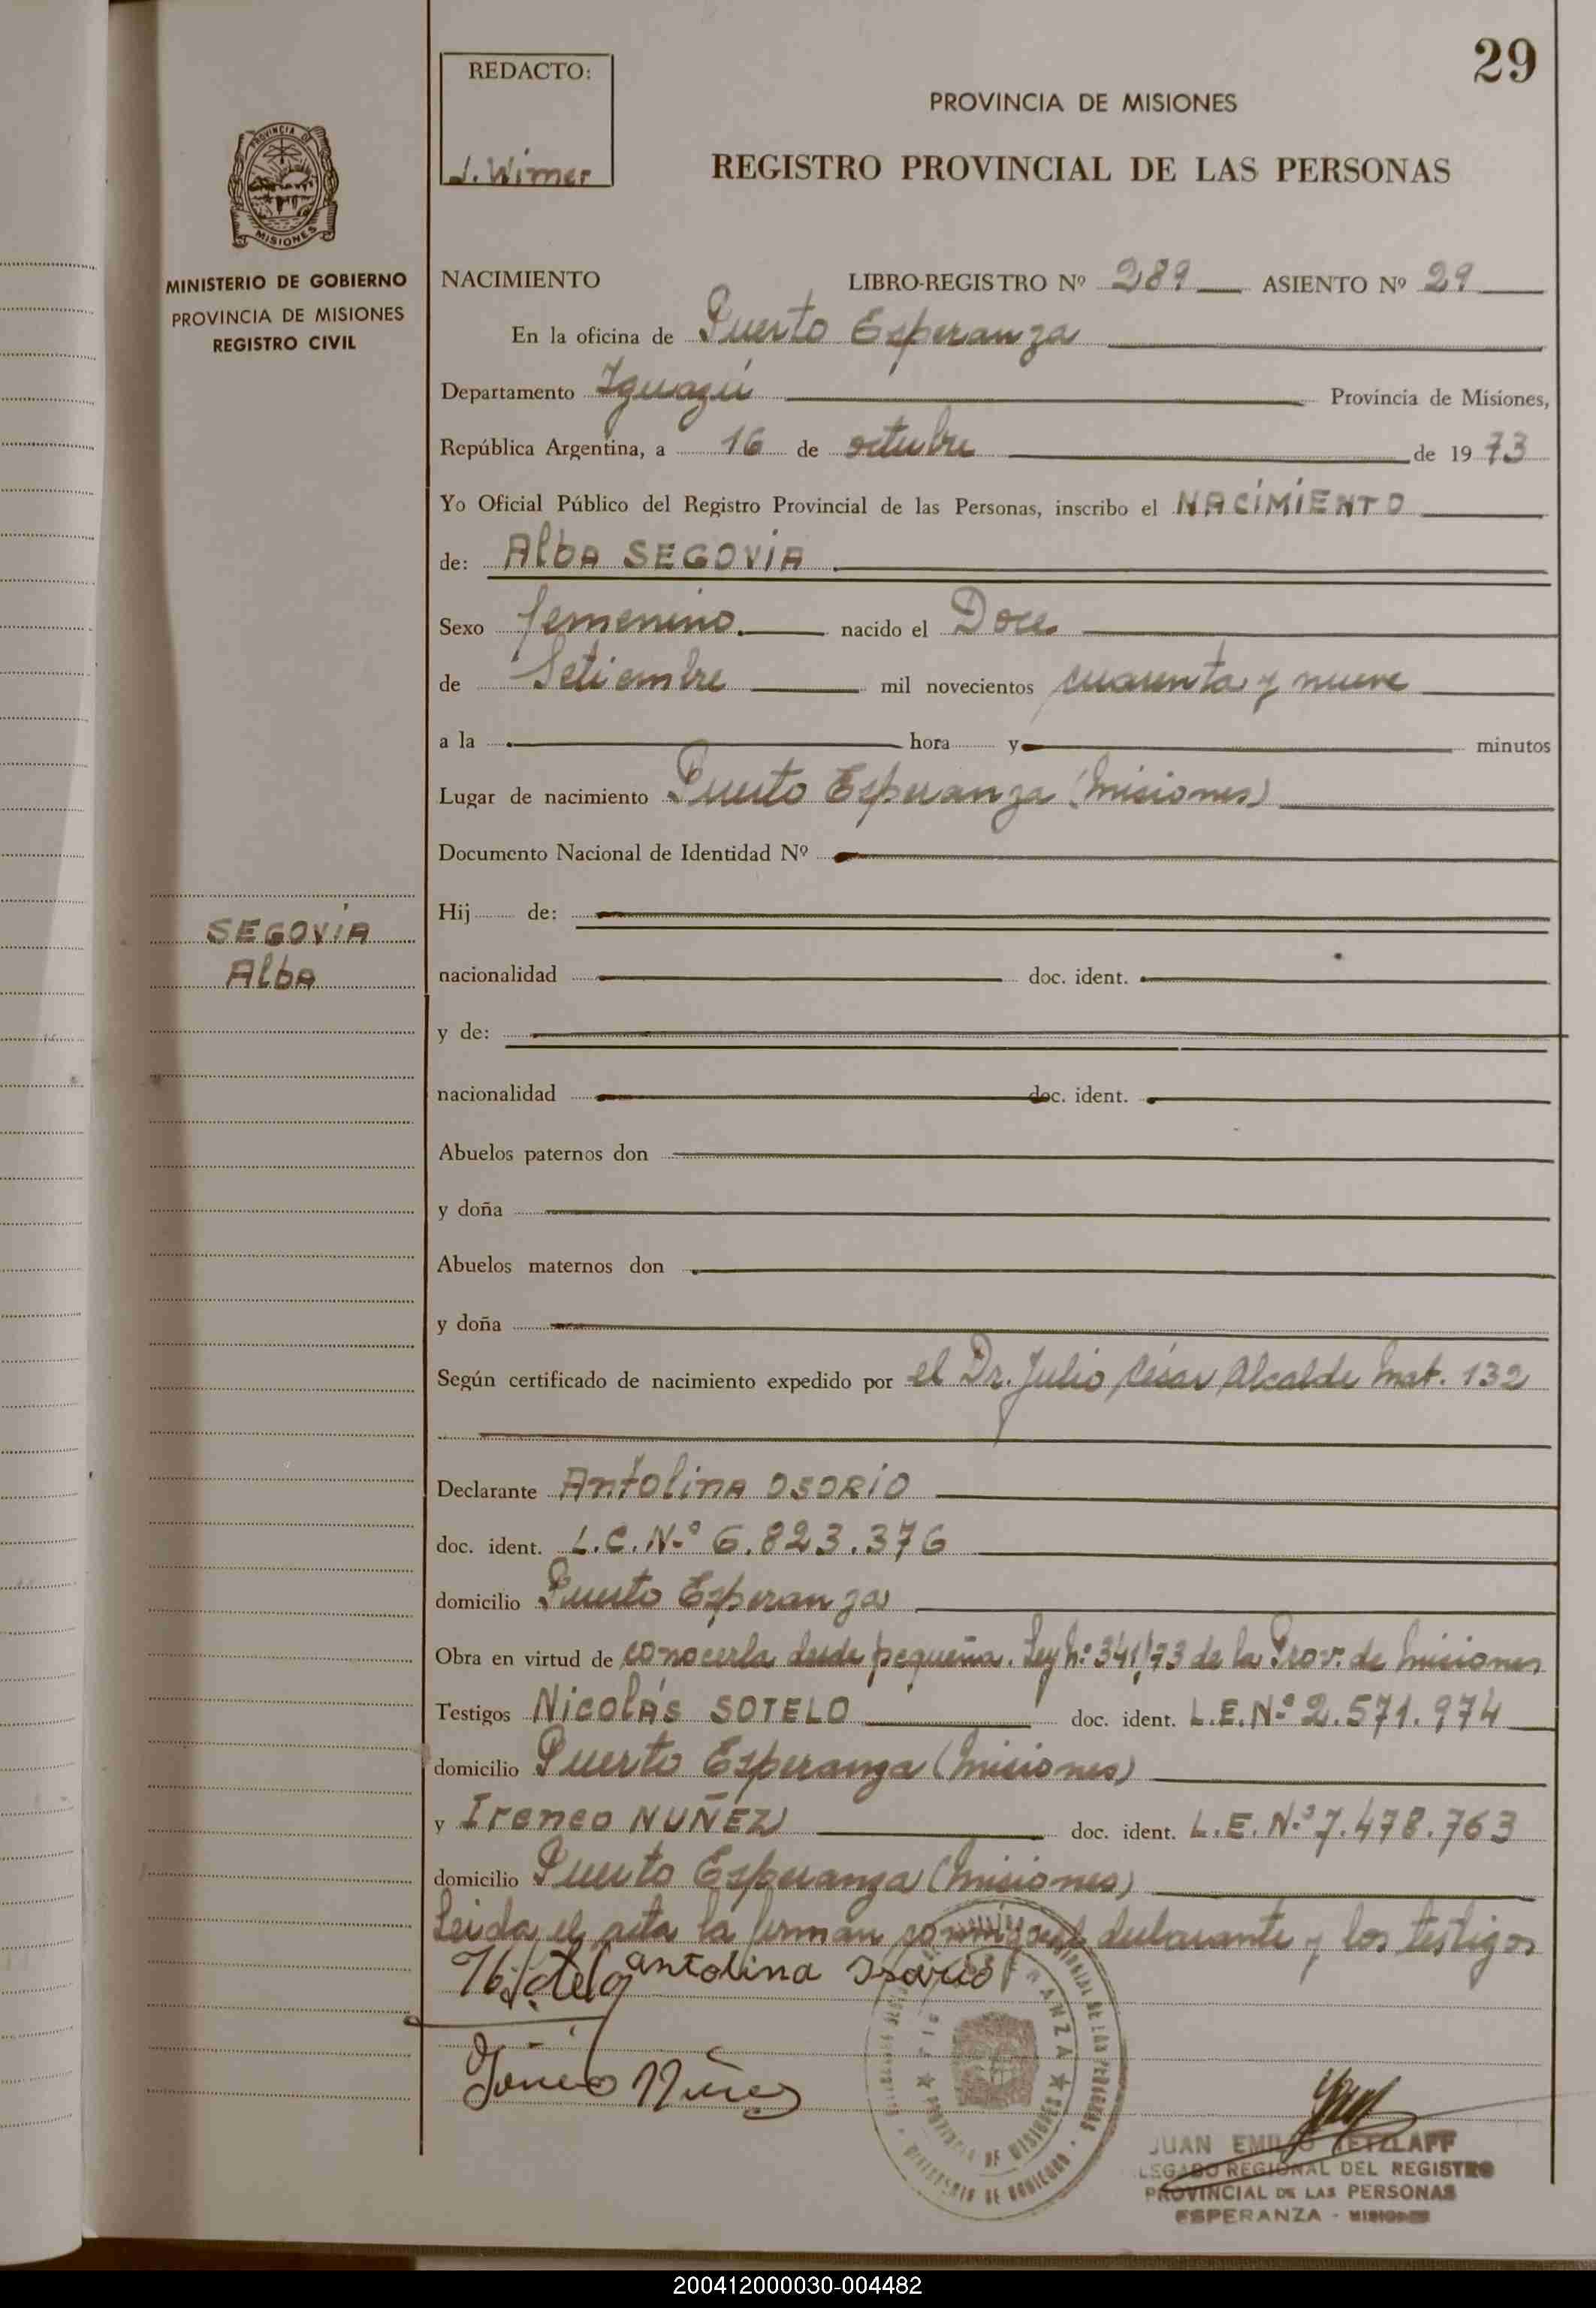 29
REDACTO:
J. Wimer
PROVINCIA DE MISIONES
REGISTRO PROVINCIAL DE LAS PERSONAS
PROVINCIA DE
MISIONES
MINISTERIO DE GOBIERNO
PROVINCIA DE MISIONES
REGISTRO CIVIL
SEGOVIA
Alba
NACIMIENTO LIBRO-REGISTRO Nº 289 ASIENTO Nº 29
En la oficina de Puerto Esperanza
Departamento Iguazú Provincia de Misiones,
República Argentina, a 16 de octubre de 1973
Yo Oficial Público del Registro Provincial de las Personas, inscribo el NACIMIENTO
de: Alba SEGOVIA
Sexo femenino. nacido el Doce
de Setiembre mil novecientos cuarenta y nueve
a la hora y minutos
Lugar de nacimiento Puerto Esperanza (Misiones)
Documento Nacional de Identidad Nº
Hij de:
nacionalidad doc. ident.
y de:
nacionalidad doc. ident.
Abuelos paternos don
y doña
Abuelos maternos don
y doña
Según certificado de nacimiento expedido por el Dr. Julio César Alcalde Mat. 132
Declarante Antolina OSORIO
doc. ident. L.C.Nº 6.823.376
domicilio Puerto Esperanza
Obra en virtud de conocerla desde pequeña. Ley Nº 341/73 de la Prov. de Misiones
Testigos Nicolás SOTELO doc. ident. L.E.Nº 2.571.974
domicilio Puerto Esperanza (Misiones)
y Ireneo NUÑEZ doc. ident. L.E.Nº 7.478.763
domicilio Puerto Esperanza (Misiones)
Leida el acta la firman conmigo el declarante y los testigos
antolina Osorio
Ireneo Nuñez
PROVINCIA DE MISIONES
MINISTERIO DE GOBIERNO
JUAN EMILIO TETZLAFF
LEGADO REGIONAL DEL REGISTRO
PROVINCIAL DE LAS PERSONAS
ESPERANZA - MISIONES
200412000030-004482